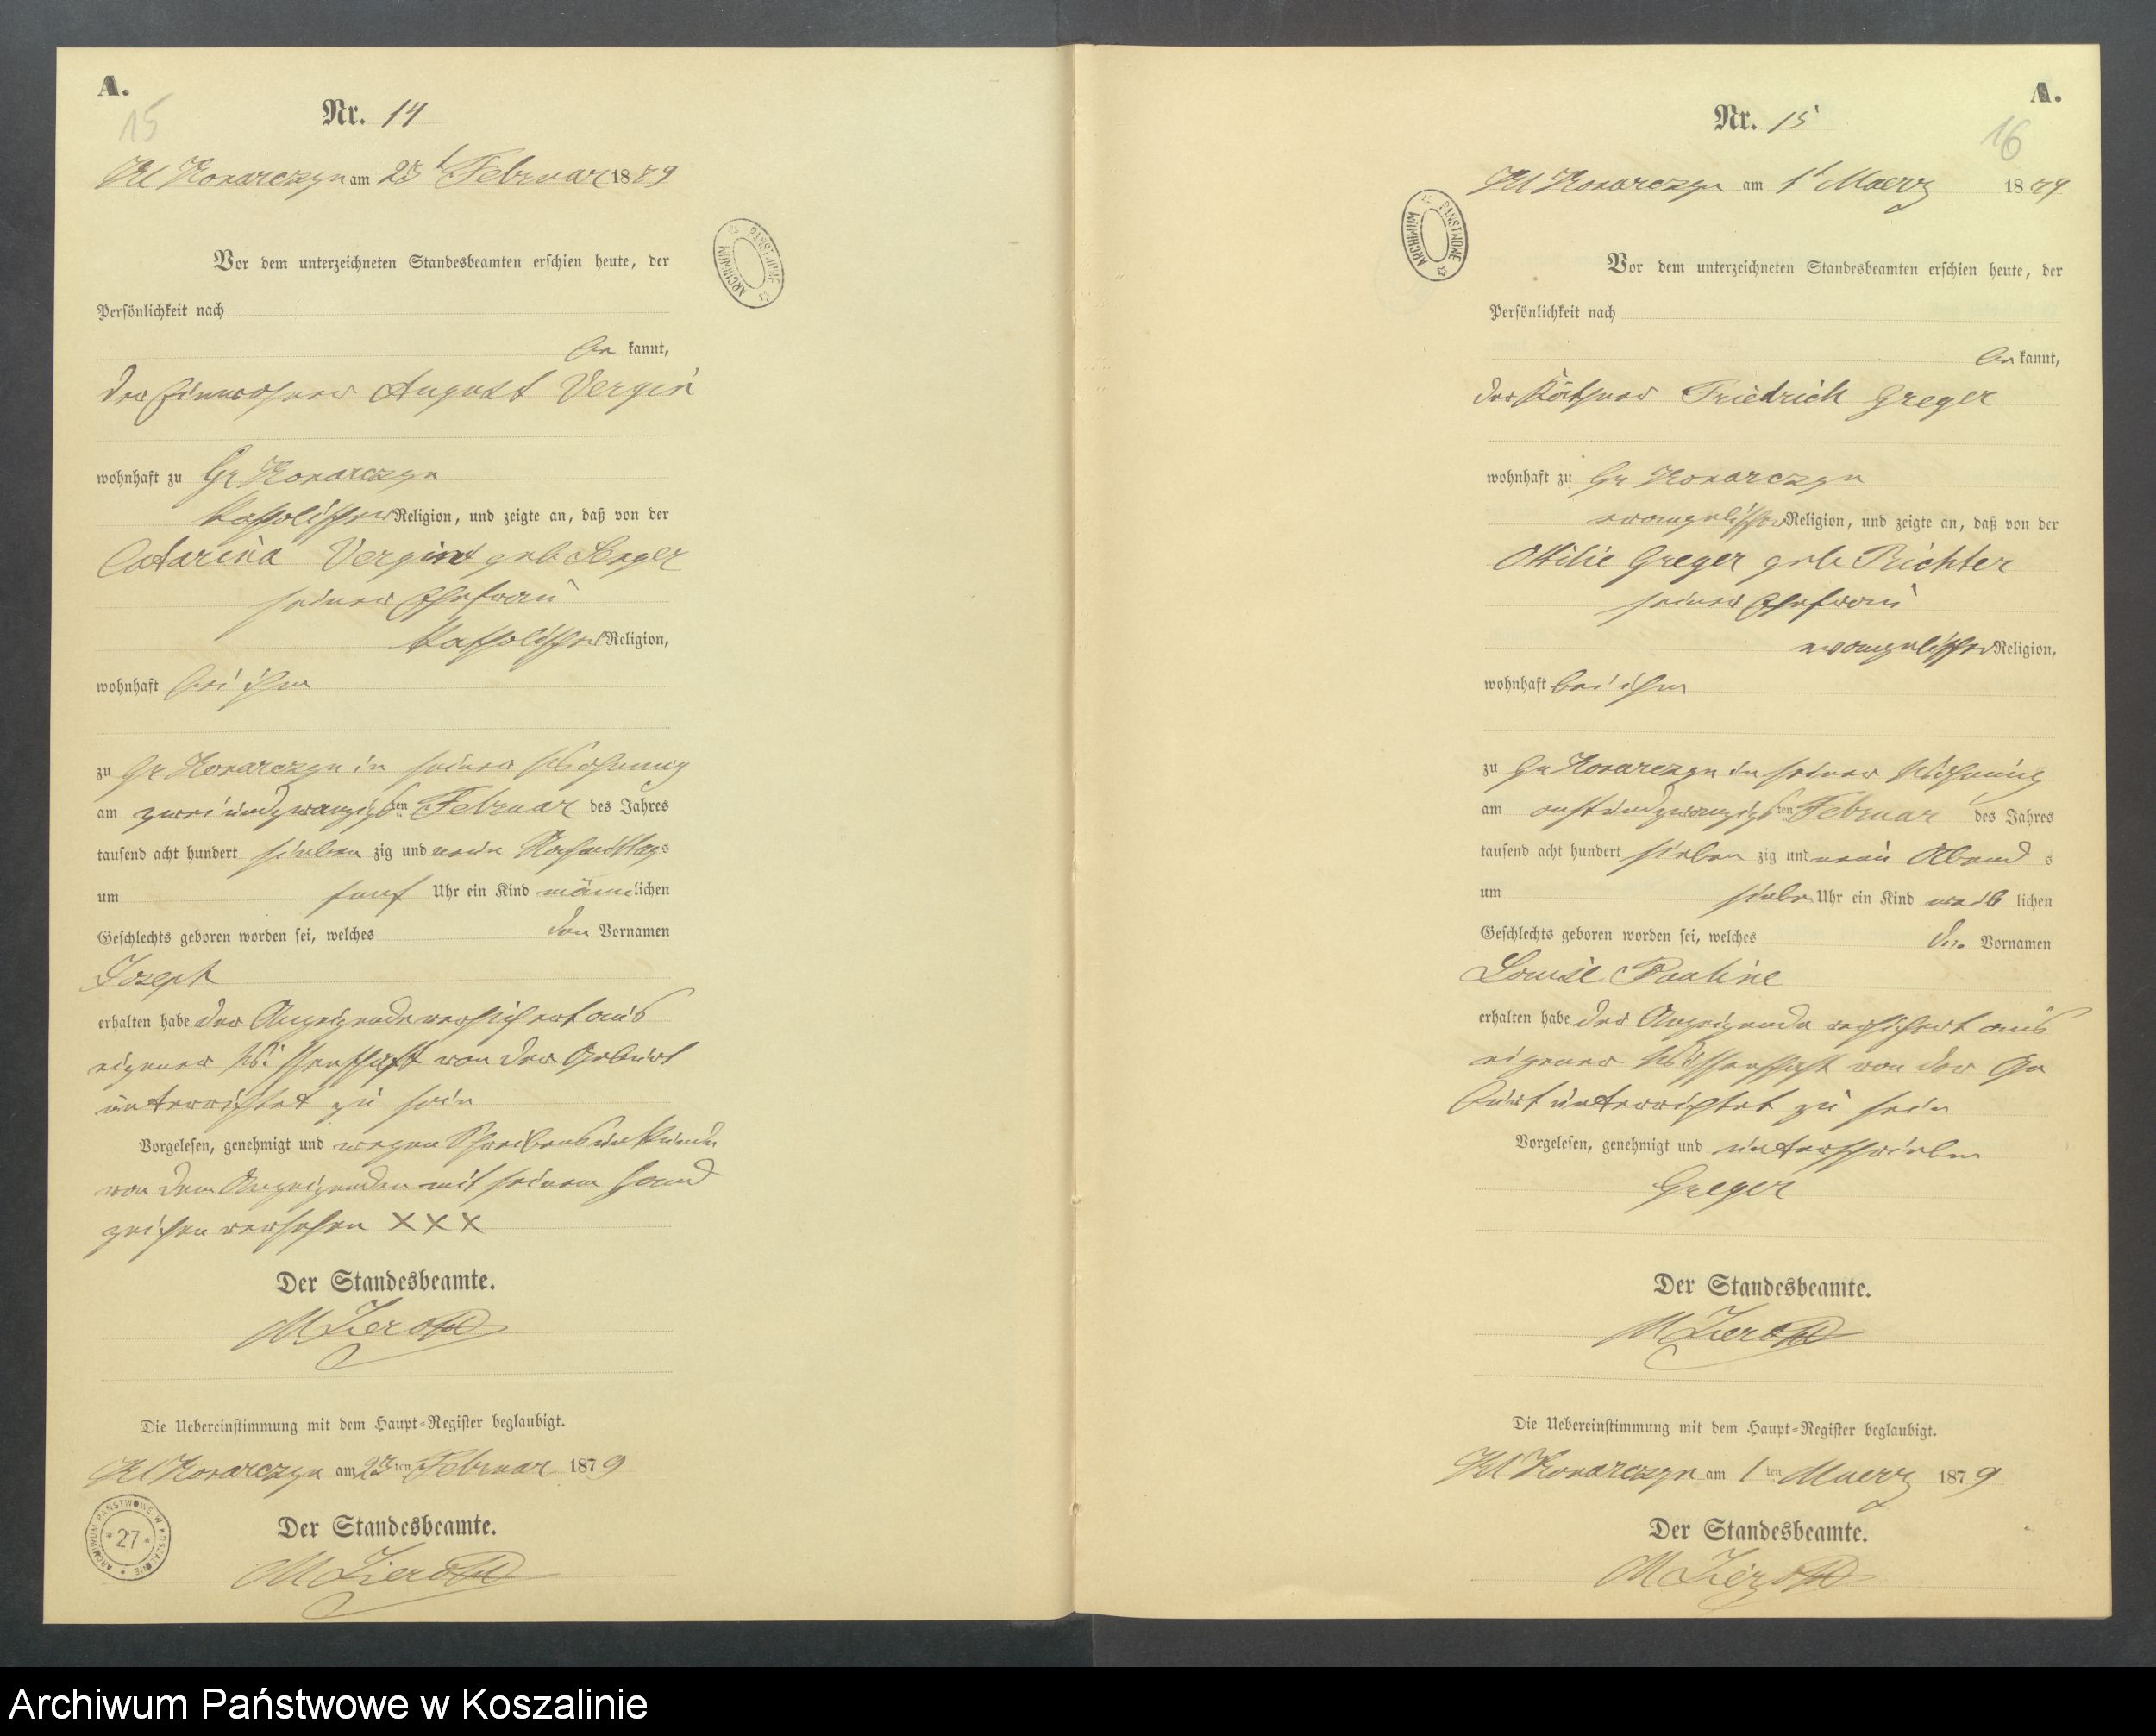 A.
15
Nr. 14
Kl Konarczyn am 23t Februar 1879
ARCHIWUM PAŃSTWOWE
Vor dem unterzeichneten Standesbeamten erschien heute, der
Persönlichkeit nach
be kannt,
der Einwohner August Vergin
wohnhaft zu Gr Konarczyn
katholischer Religion, und zeigte an, daß von der
Catarina Vergin geb
seiner Ehefrau
katholischer Religion,
wohnhaft bei ihm
zu Gr Konarczyn in seiner Wohnung
am zweiundzwanzigsten Februar des Jahres
tausend acht hundert sieben zig und neun Nachmittags
um fünf Uhr ein Kind männlichen
Geschlechts geboren worden sei, welches den Vornamen
Joseph
erhalten habe der Anzeigende versichert aus
eigener Wissenschaft von der Geburt
unterrichtet zu sein
Vorgelesen, genehmigt und wegen Schreibensunkunde
von dem Anzeigenden mit seinem Hand
zeichen versehen XXX
Der Standesbeamte.
Die Uebereinstimmung mit dem Haupt-Register beglaubigt.
Kl Konarczyn am 23ten Februar 1879
ARCHIWUM PAŃSTWOWE W KOSZALINIE
27
Der Standesbeamte.
A.
16
Nr. 15
Kl Konarczyn am 1t Maerz 1879
ARCHIWUM PAŃSTWOWE
Vor dem unterzeichneten Standesbeamten erschien heute, der
Persönlichkeit nach
be kannt,
der Käthner Friedrich Greger
wohnhaft zu Gr Konarczyn
evangelischer Religion, und zeigte an, daß von der
Ottilie Greger geb Richter
seiner Ehefrau
evangelischer Religion,
wohnhaft bei ihm
zu Gr Konarczyn in seiner Wohnung
am achtundzwanzigsten Februar des Jahres
tausend acht hundert sieben zig und neun Abend s
um sieben Uhr ein Kind weib lichen
Geschlechts geboren worden sei, welches die Vornamen
Louise Pauline
erhalten habe der Anzeigende versichert aus
eigener Wissenschaft von der Ge
burt unterrichtet zu sein
Vorgelesen, genehmigt und unterschrieben
Greger
Der Standesbeamte.
Die Uebereinstimmung mit dem Haupt-Register beglaubigt.
Kl Konarczyn am 1ten Maerz 1879
Der Standesbeamte.
Archiwum Państwowe w Koszalinie